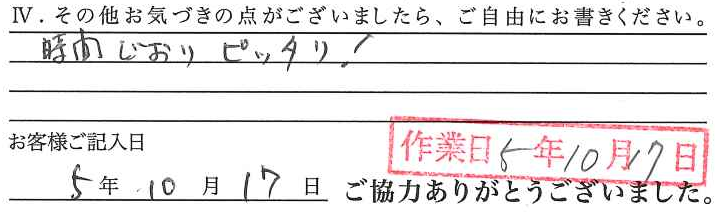 Ⅳ．その他お気づきの点がございましたら、ご自由にお書きください。
時間どおり ピッタリ！
お客様ご記入日
作業日5年10月17日
5年10月17日 ご協力ありがとうございました。